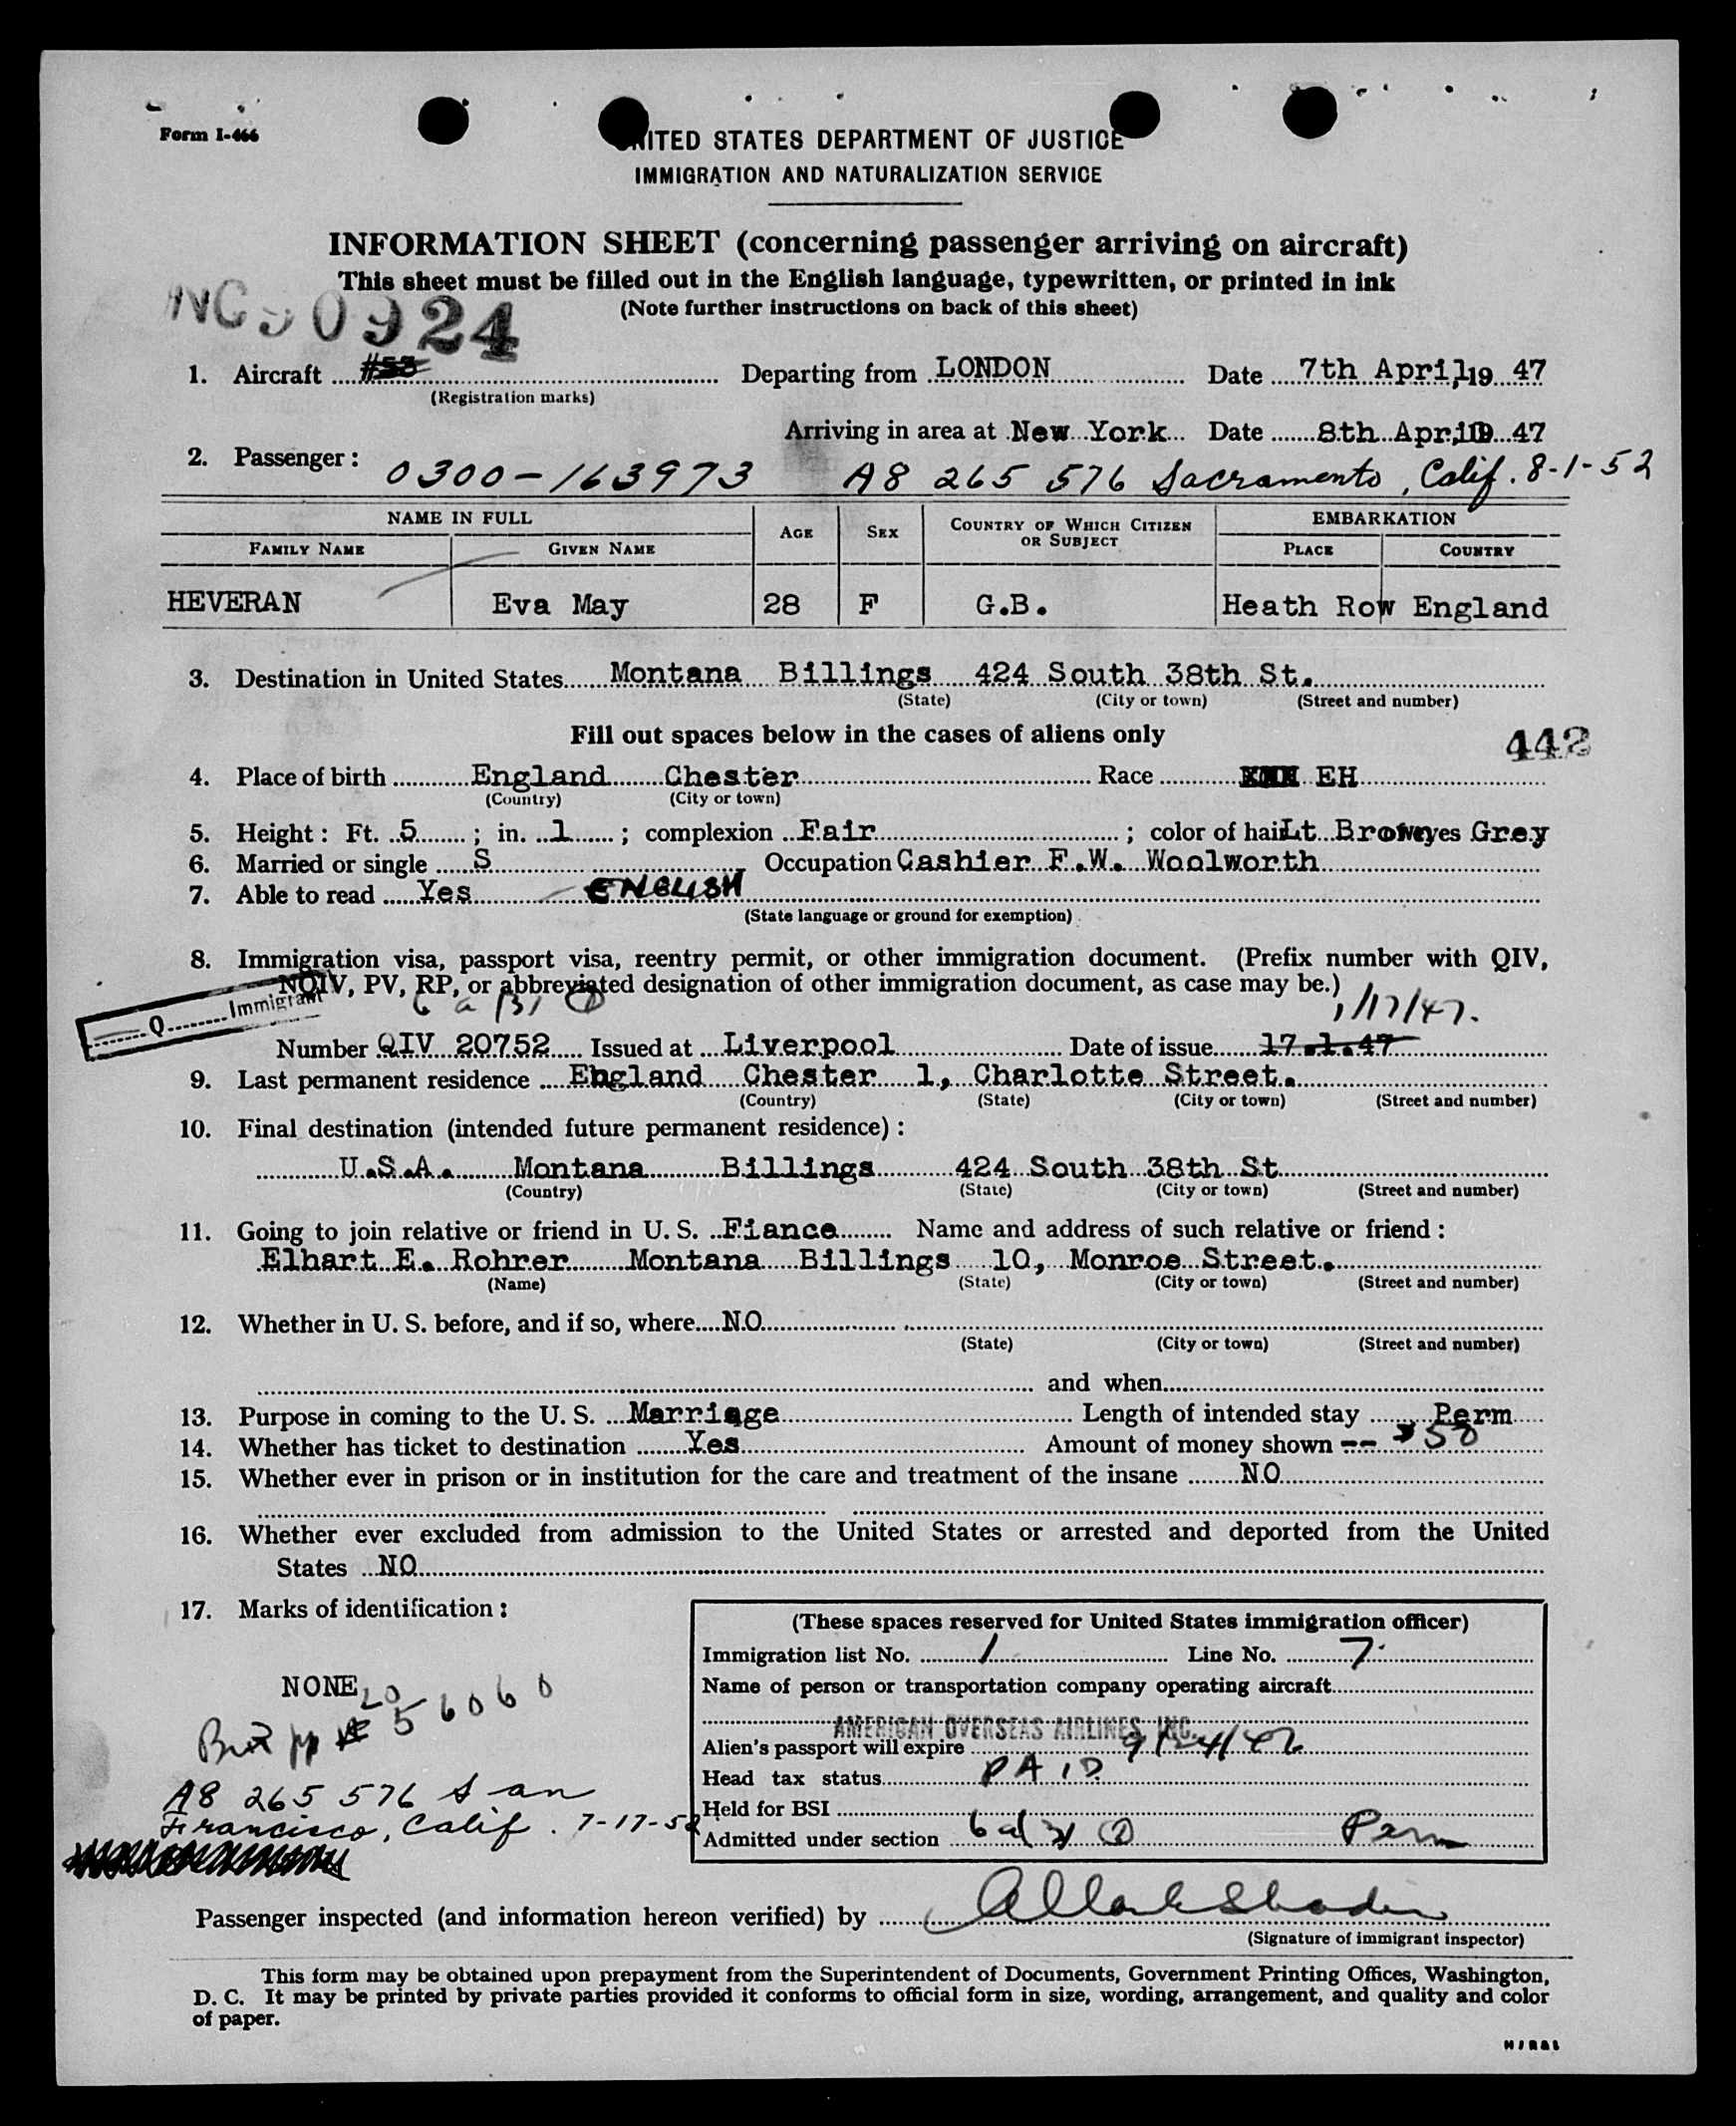 Form I-466
UNITED STATES DEPARTMENT OF JUSTICE
IMMIGRATION AND NATURALIZATION SERVICE
INFORMATION SHEET (concerning passenger arriving on aircraft)
This sheet must be filled out in the English language, typewritten, or printed in ink
(Note further instructions on back of this sheet)
NC 50924
1. Aircraft #53 Departing from LONDON Date 7th April, 19 47
(Registration marks)
Arriving in area at New York Date 8th April, 19 47
2. Passenger: 0300-163973 A8 265 576 Sacramento, Calif. 8-1-52
NAME IN FULL AGE SEX COUNTRY OF WHICH CITIZEN OR SUBJECT EMBARKATION
FAMILY NAME GIVEN NAME PLACE COUNTRY
HEVERAN Eva May 28 F G.B. Heath Row England
3. Destination in United States Montana Billings 424 South 38th St.
(State) (City or town) (Street and number)
Fill out spaces below in the cases of aliens only
442
4. Place of birth England Chester Race EH
(Country) (City or town)
5. Height: Ft. 5; in. 1; complexion Fair; color of hair Lt Brown eyes Grey
6. Married or single S Occupation Cashier F.W. Woolworth
7. Able to read Yes ENGLISH
(State language or ground for exemption)
8. Immigration visa, passport visa, reentry permit, or other immigration document. (Prefix number with QIV,
NQIV, PV, RP, or abbreviated designation of other immigration document, as case may be.)
Q Immigrant
1/17/47.
Number QIV 20752 Issued at Liverpool Date of issue 17.1.47
9. Last permanent residence England Chester 1, Charlotte Street.
(Country) (State) (City or town) (Street and number)
10. Final destination (intended future permanent residence):
U.S.A. Montana Billings 424 South 38th St
(Country) (State) (City or town) (Street and number)
11. Going to join relative or friend in U. S. Fiance Name and address of such relative or friend:
Elhart E. Rohrer Montana Billings 10, Monroe Street.
(Name) (State) (City or town) (Street and number)
12. Whether in U. S. before, and if so, where NO
(State) (City or town) (Street and number)
and when
13. Purpose in coming to the U. S. Marriage Length of intended stay Perm
14. Whether has ticket to destination Yes Amount of money shown -- $50
15. Whether ever in prison or in institution for the care and treatment of the insane NO
16. Whether ever excluded from admission to the United States or arrested and deported from the United
States NO
17. Marks of identification:
NONE
Brit pp
A8 265 576 San
Francisco, Calif. 7-17-52
(These spaces reserved for United States immigration officer)
Immigration list No. 1 Line No. 7
Name of person or transportation company operating aircraft
AMERICAN OVERSEAS AIRLINES, INC.
Alien's passport will expire
Head tax status PAID
Held for BSI
Admitted under section Perm
Passenger inspected (and information hereon verified) by
(Signature of immigrant inspector)
This form may be obtained upon prepayment from the Superintendent of Documents, Government Printing Offices, Washington,
D. C. It may be printed by private parties provided it conforms to official form in size, wording, arrangement, and quality and color
of paper.